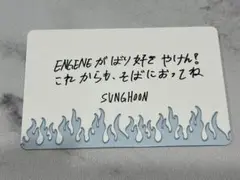 ENGENEがばり好きやけん!
これからも、そばにおってね
SUNGHOON